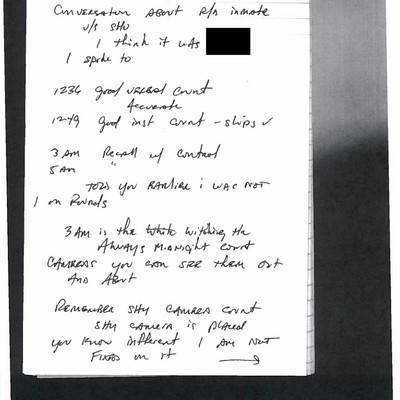 Conversation About R/n inmate
w/s SHU
I think it was
I spoke to
1236 good verbal count
Accurate
1249 good inst count - slips ✓
3 AM Recall w/ Control
5 AM "
Told you earlier i was not
1 on Rounds
3 AM is the witching Hr
Always Midnight Count
Cameras you can see them out
And About
Remember SHU Camera Count
SHU Camera is placed
you know different I am not
Fixed on it